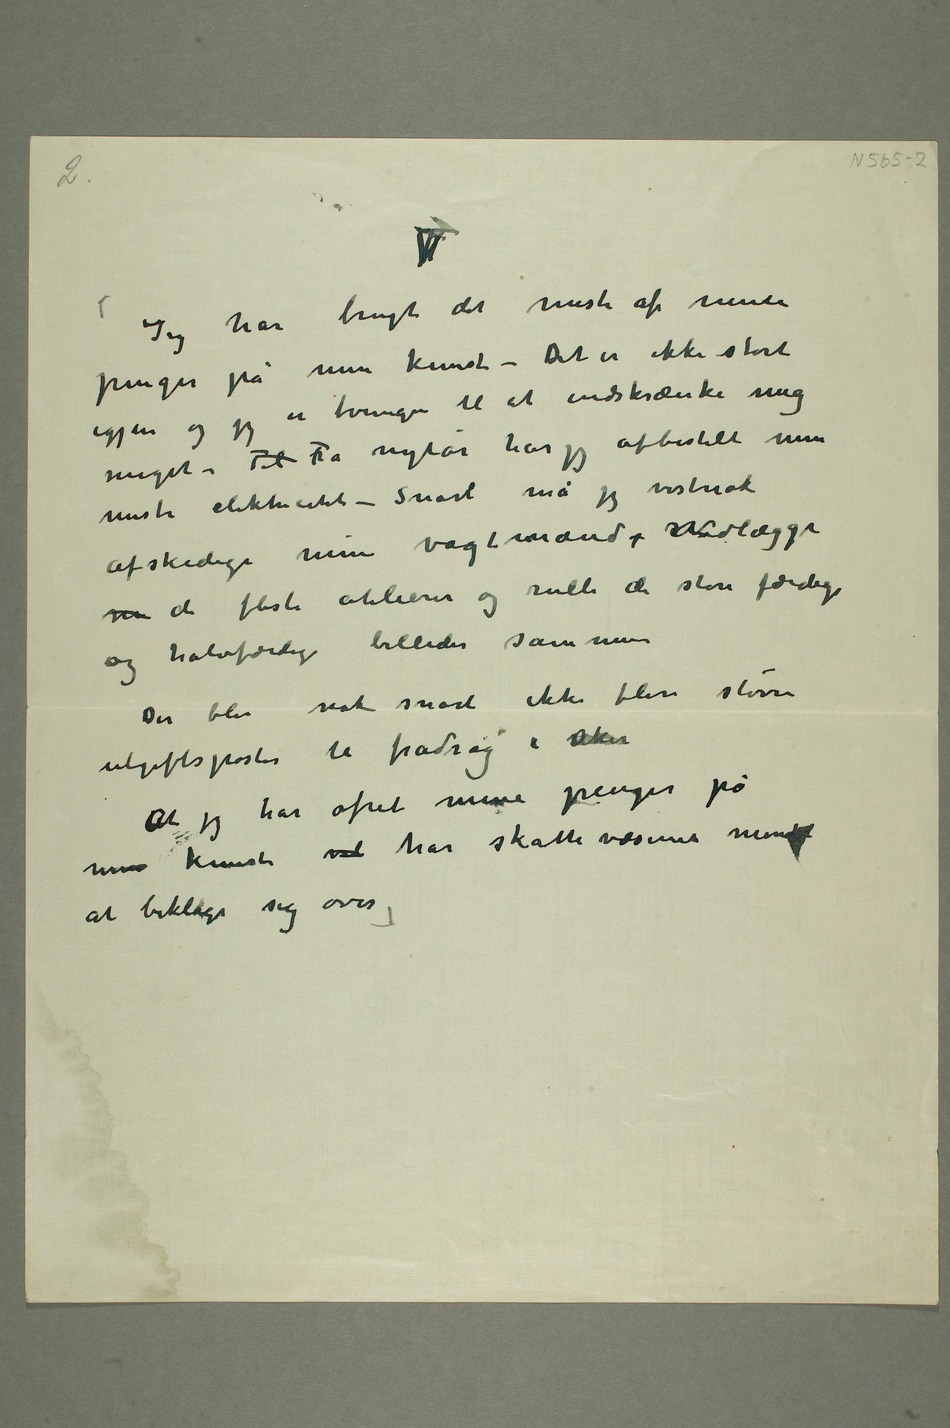 2.
N 565-2
V
Jeg har brugt det meste af mine
penger på min kunst – Det er ikke stort
igjen og jeg er tvungen til at indskrænke mig
meget – Til Fra nytår har jeg afbestilt min
meste elektricitet – Snart må jeg vistnok
afskedige mine vagtmænd, nedlægge
de fleste atelierer og rulle de store færdige
og halvfærdige billeder sammen
Der blir nok snart ikke flere større
utgiftsposter til fradrag i Aker
At jeg har ofret mine penger på
min kunst vil har skattevæsenet mindst
at beklage sig over